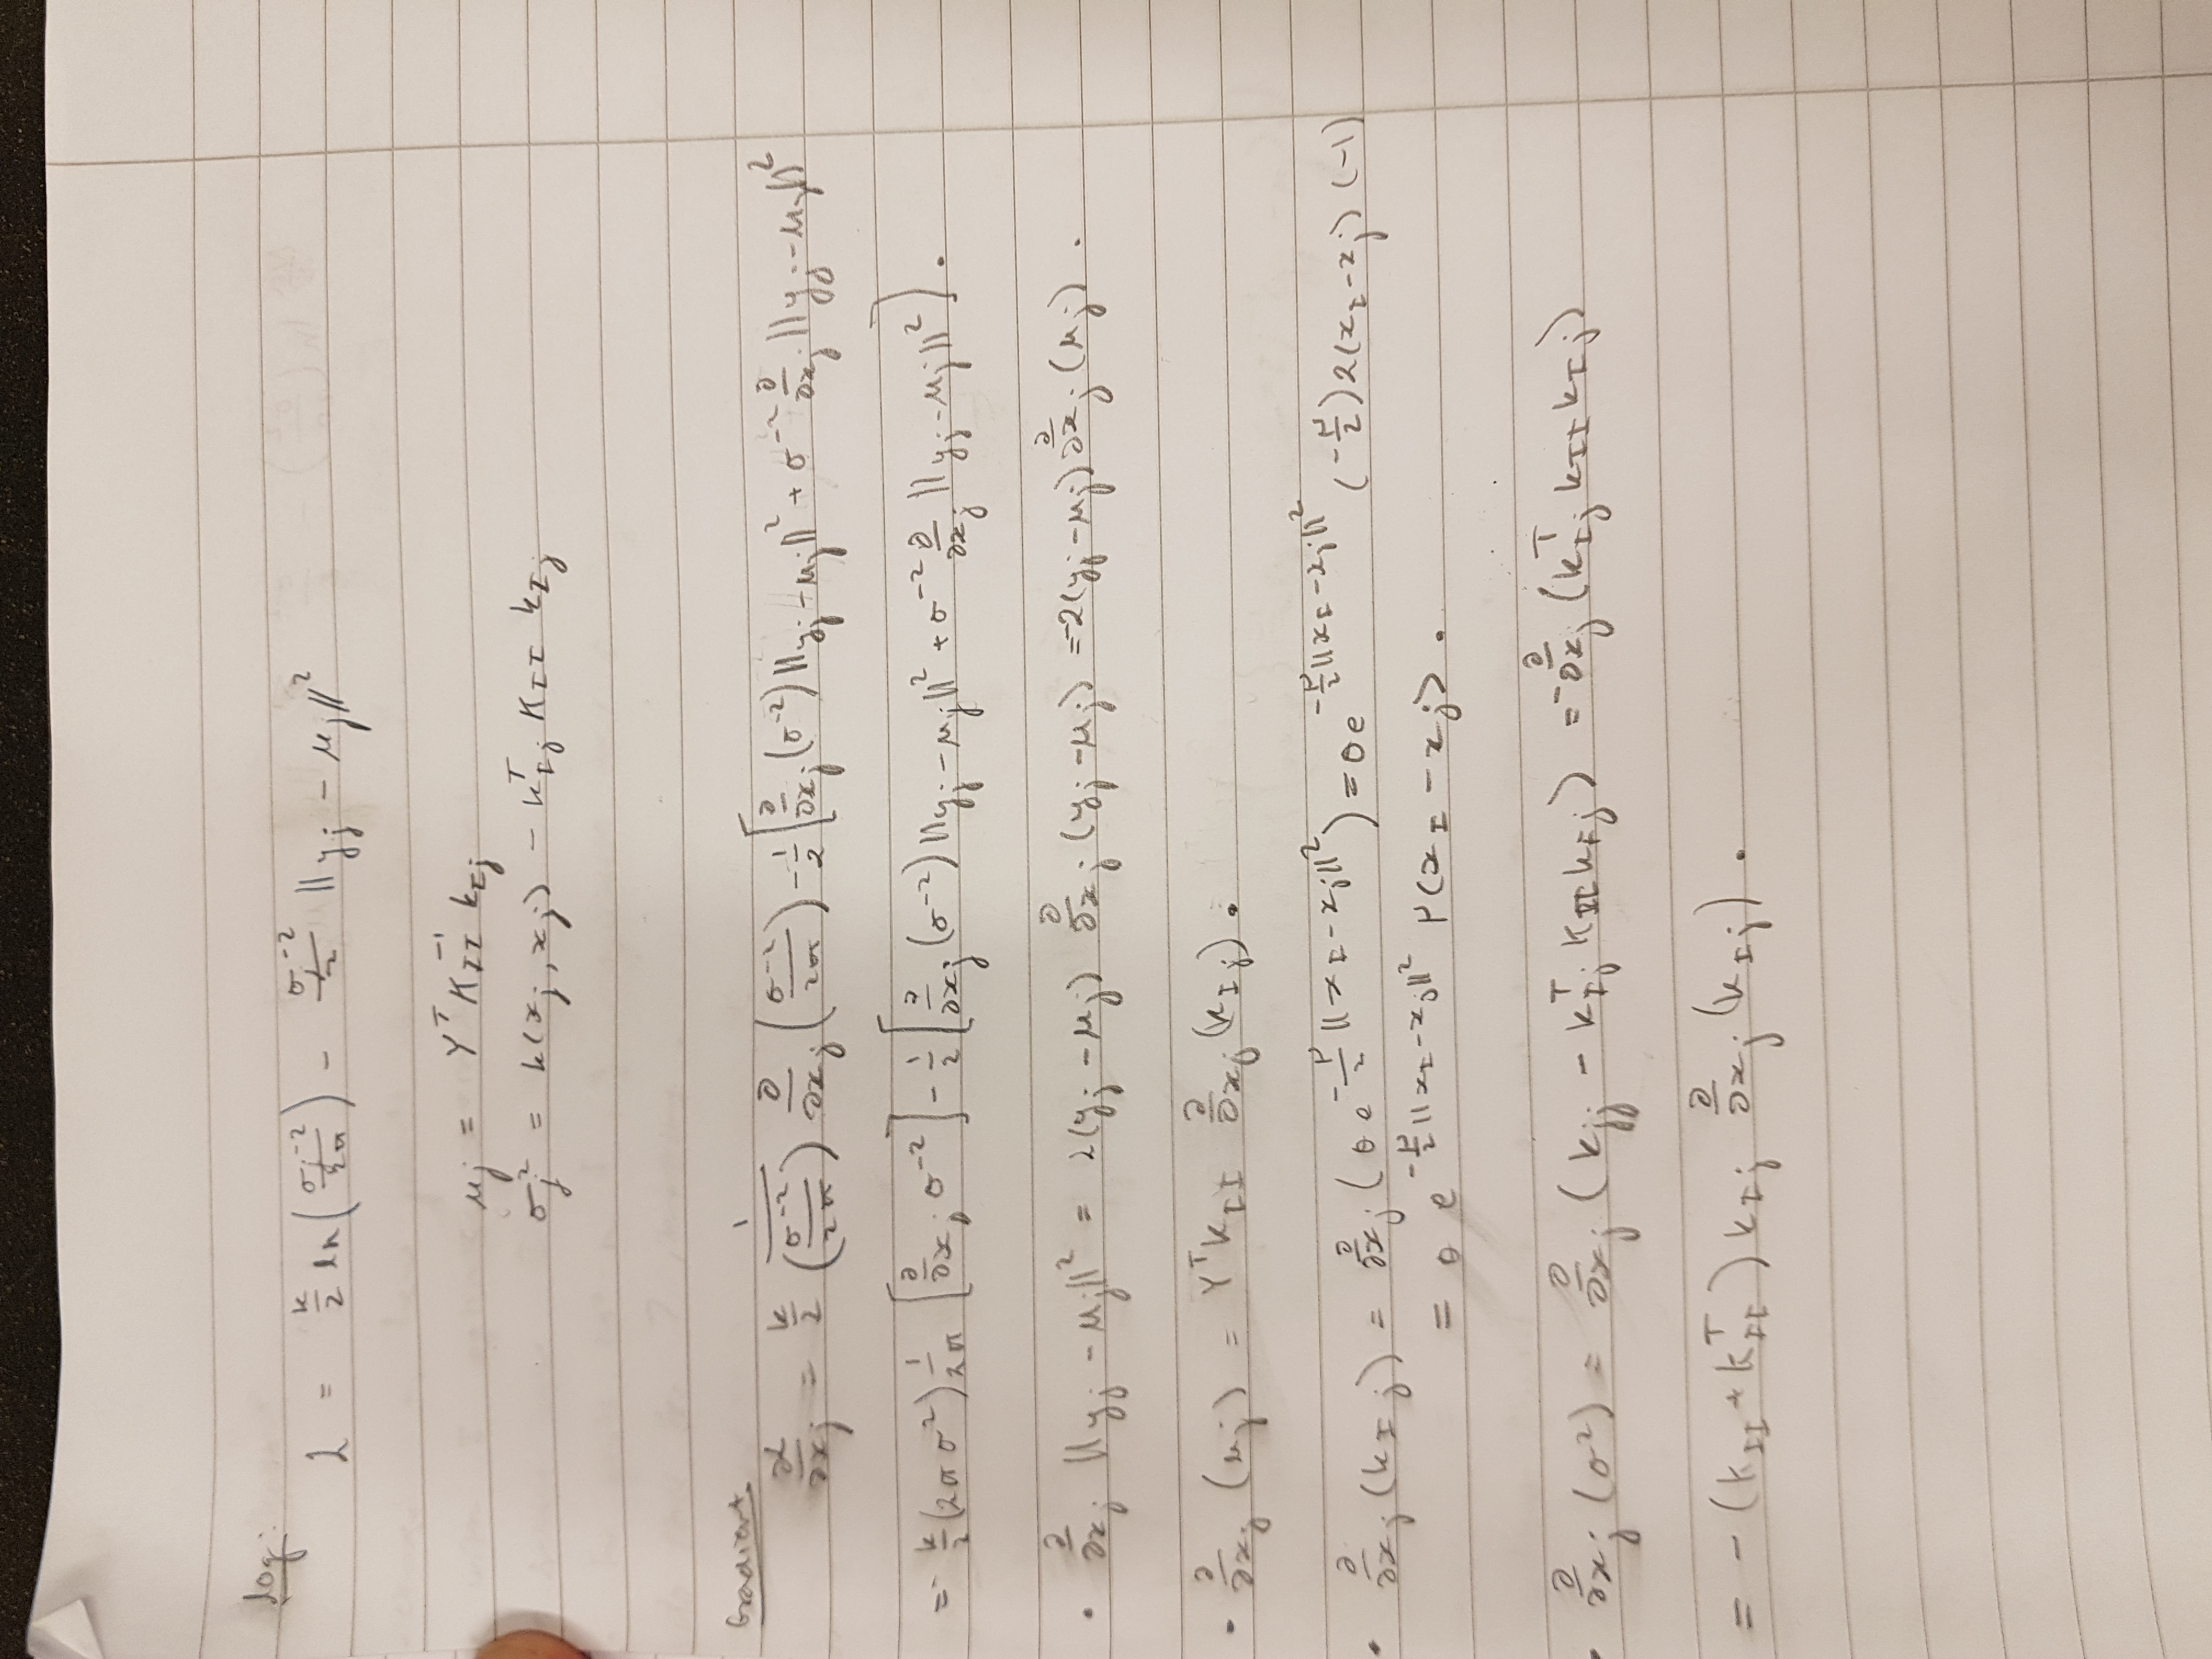 log:
L = k/2 ln(σ_j^-2/2π) - σ_j^-2/2 ||y_j - μ_j||^2
μ_j = Y^T K_II^-1 k_Ij
σ_j^2 = k(x_j, x_j) - k_Ij^T K_II k_Ij
Gradient
∂L/∂x_j = k/2 1/(σ^-2/2π) ∂/∂x_j (σ^-2/2π) - 1/2 [∂/∂x_j (σ^-2) ||y_j - μ_j||^2 + σ^-2 ∂/∂x_j ||y_j - μ_j||^2
= k/2 (2πσ^2) 1/2π [∂/∂x_j σ^-2] - 1/2 [∂/∂x_j (σ^-2) ||y_j - μ_j||^2 + σ^-2 ∂/∂x_j ||y_j - μ_j||^2].
• ∂/∂x_j ||y_j - μ_j||^2 = 2(y_j - μ_j) ∂/∂x_j (y_j - μ_j) = -2(y_j - μ_j) ∂/∂x_j (μ_j).
• ∂/∂x_j (μ_j) = Y^T K_II ∂/∂x_j (k_Ij).
• ∂/∂x_j (k_Ij) = ∂/∂x_j (θ e^{-γ/2 ||x_I - x_j||^2}) = θ e^{-γ/2 ||x_I - x_j||^2} (-γ/2) 2(x_I - x_j) (-1)
= θ e^{-γ/2 ||x_I - x_j||^2} γ(x_I - x_j).
• ∂/∂x_j (σ^2) = ∂/∂x_j (k_jj - k_Ij^T K_II k_Ij) = -∂/∂x_j (k_Ij^T K_II k_Ij)
= - (K_II + K_II^T) k_Ij ∂/∂x_j (k_Ij).